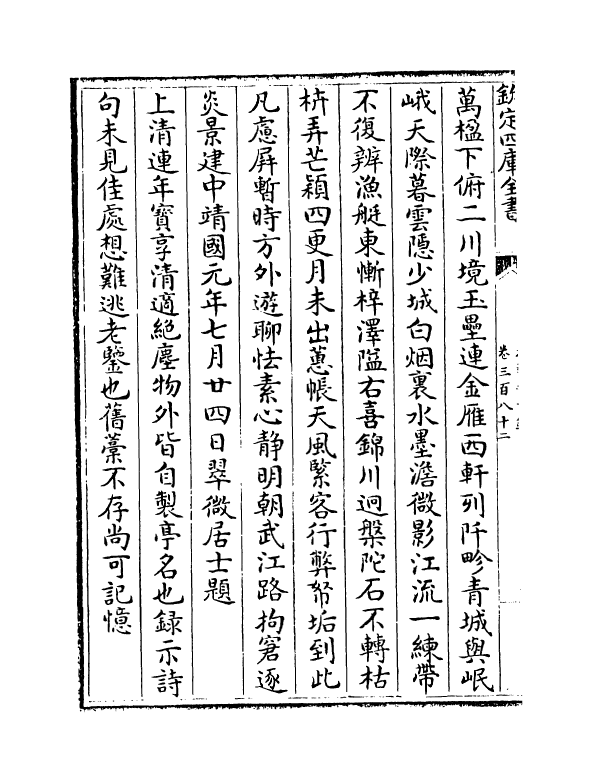 欽定四庫全書
卷三百八十二
萬楹下俯二川境玉壘連金雁西軒列阡畛青城與岷
峨天際暮雲隱少城白烟裏水墨澹微影江流一練帶
不復辨漁艇東慚梓澤隘右喜錦川迥槃陀石不轉枯
枿弄芒穎四更月未出蕙帳天風緊客行弊帑垢到此
凡慮屏暫時方外遊聊怯素心靜明朝武江路拘窘逐
炎景建中靖國元年七月廿四日翠微居士題
上清連年寳享清適絶塵物外皆自製亭名也録示詩
句未見佳處想難逃老鑒也舊藁不存尚可記憶